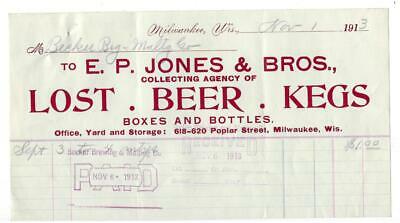 Milwaukee, Wis., Nov 1 1913
M Becker Brg. Maltg Co
TO E. P. JONES & BROS.,
COLLECTING AGENCY OF
LOST . BEER . KEGS
BOXES AND BOTTLES.
Office, Yard and Storage: 618-620 Poplar Street, Milwaukee, Wis.
Sept 3 $1.00
Becker Brewing & Malting Co.
PAID
NOV 6 - 1913
RECEIVED
NOV 6 - 1913